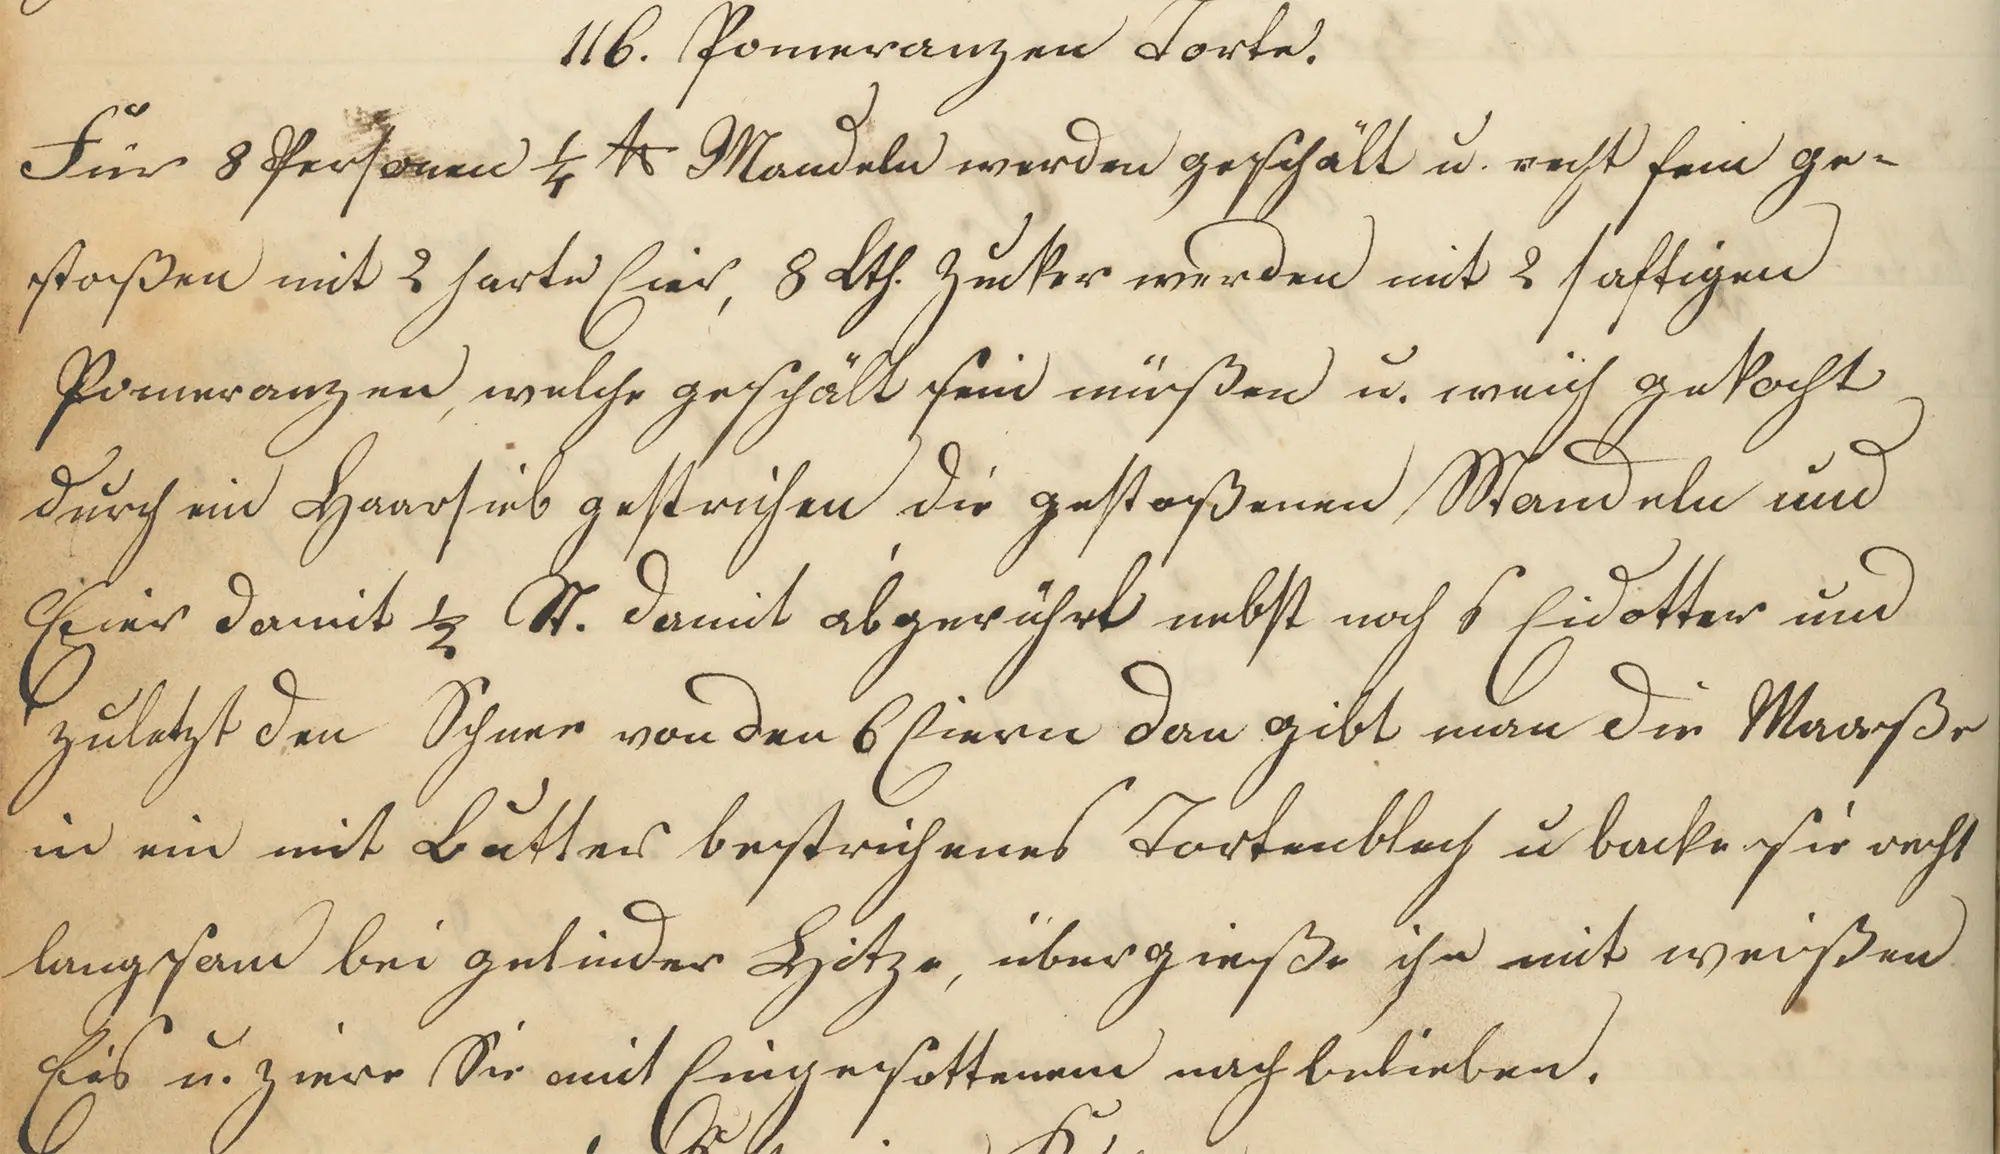 116. Pomeranzen Torte.
Für 8 Personen ¼ ℔ Mandeln werden geschält u. recht fein ge-
stoßen mit 2 harte Eier, 8 Lth. Zucker werden mit 2 saftigen
Pomeranzen, welche geschält sein müßen u. weich gekocht
durch ein Haarsieb gestrichen die gestoßenen Mandeln und
Eier damit ½ St. damit abgerührt nebst noch 6 Eidotter und
zuletzt den Schnee von den 6 Eiern dan gibt man die Maaße
in ein mit Butter bestrichenes Tortenblech u backe sie recht
langsam bei gelinder Hitze, übergieße ihn mit weißen
Eis u. ziere Sie mit Eingesottenem nach belieben.